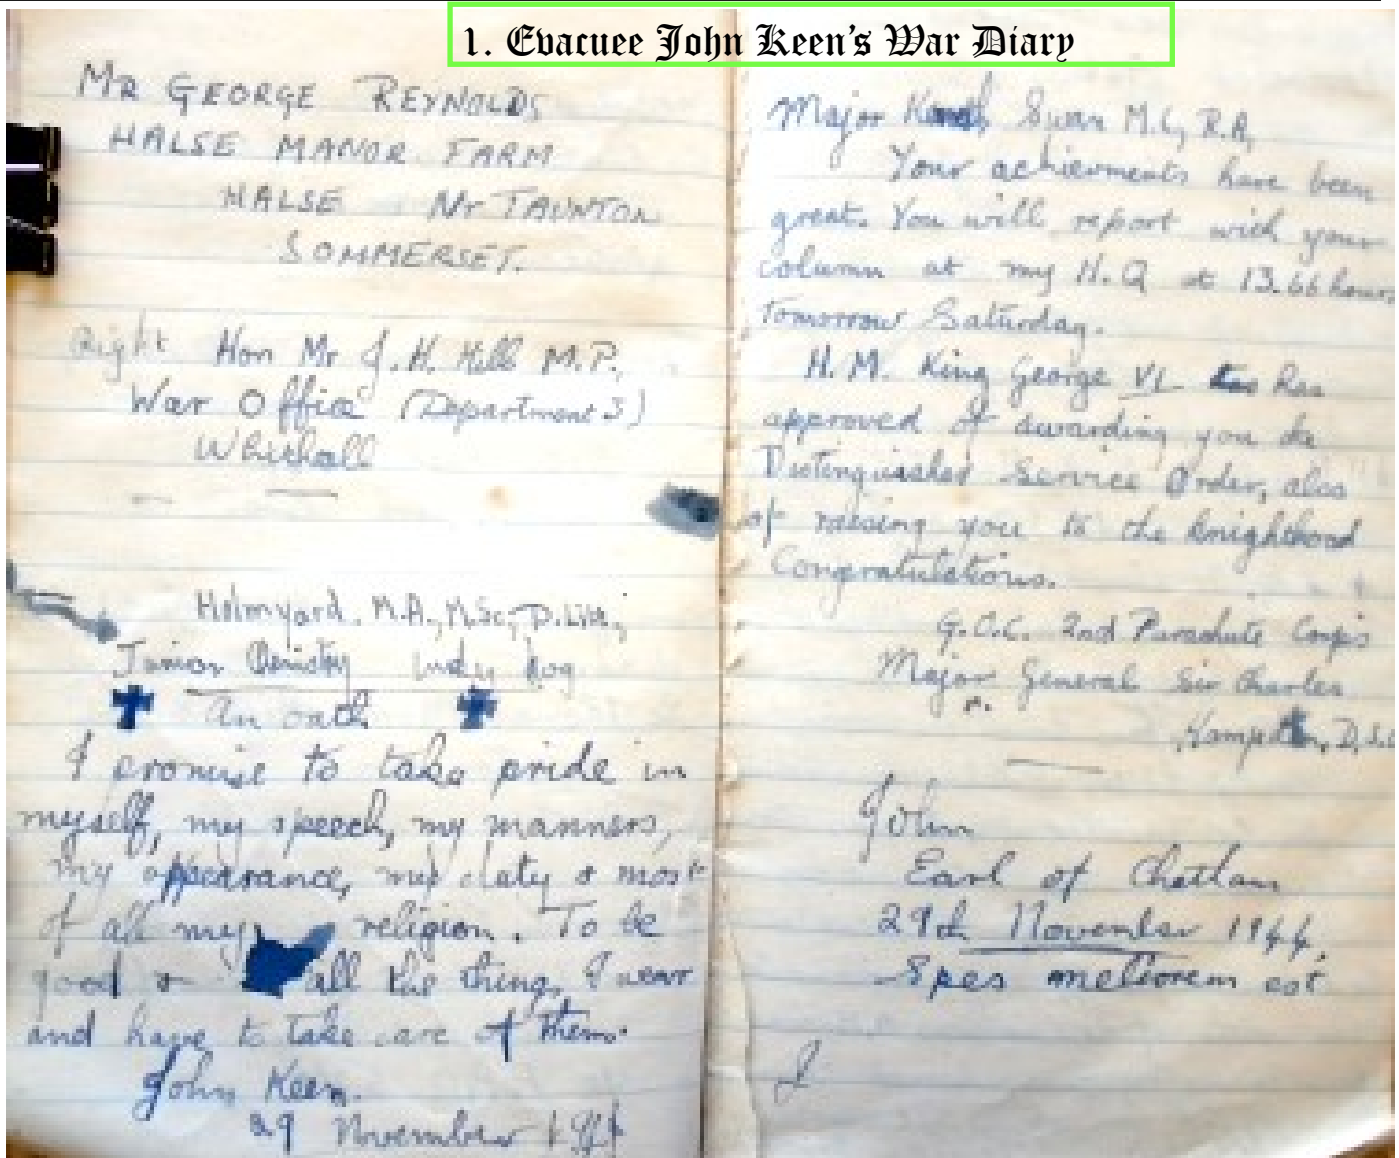 1. Evacuee John Keen's War Diary
MR GEORGE REYNOLDS
HALSE MANOR FARM
HALSE Nr TAUNTON
SOMMERSET.
Right Hon Mr J. H. Hill M.P.,
War Office (Department 3)
Whitehall
Holmyard, M.A., M.Sc., D.Litt.,
Junior
An oath
I promise to take pride in
myself, my speech, my manners,
my appearance, my duty & most
of all my religion. To be
good & all the things I wear
and have to take care of them.
John Keen.
29 November 1944
Major Swan M.C, R.A,
Your achievments have been
great. You will report with your
column at my H.Q at 13.66 hours
Tomorrow Saturday.
H. M. King George VI has
approved of awarding you the
Distinguished Service Order, also
of raising you to the knighthood
Congratulations.
G.O.C. 2nd Parachute Corps
Major General Sir Charles
D.S.O
John
Earl of Chatham
29th November 1944.
Spes meliorem est
I